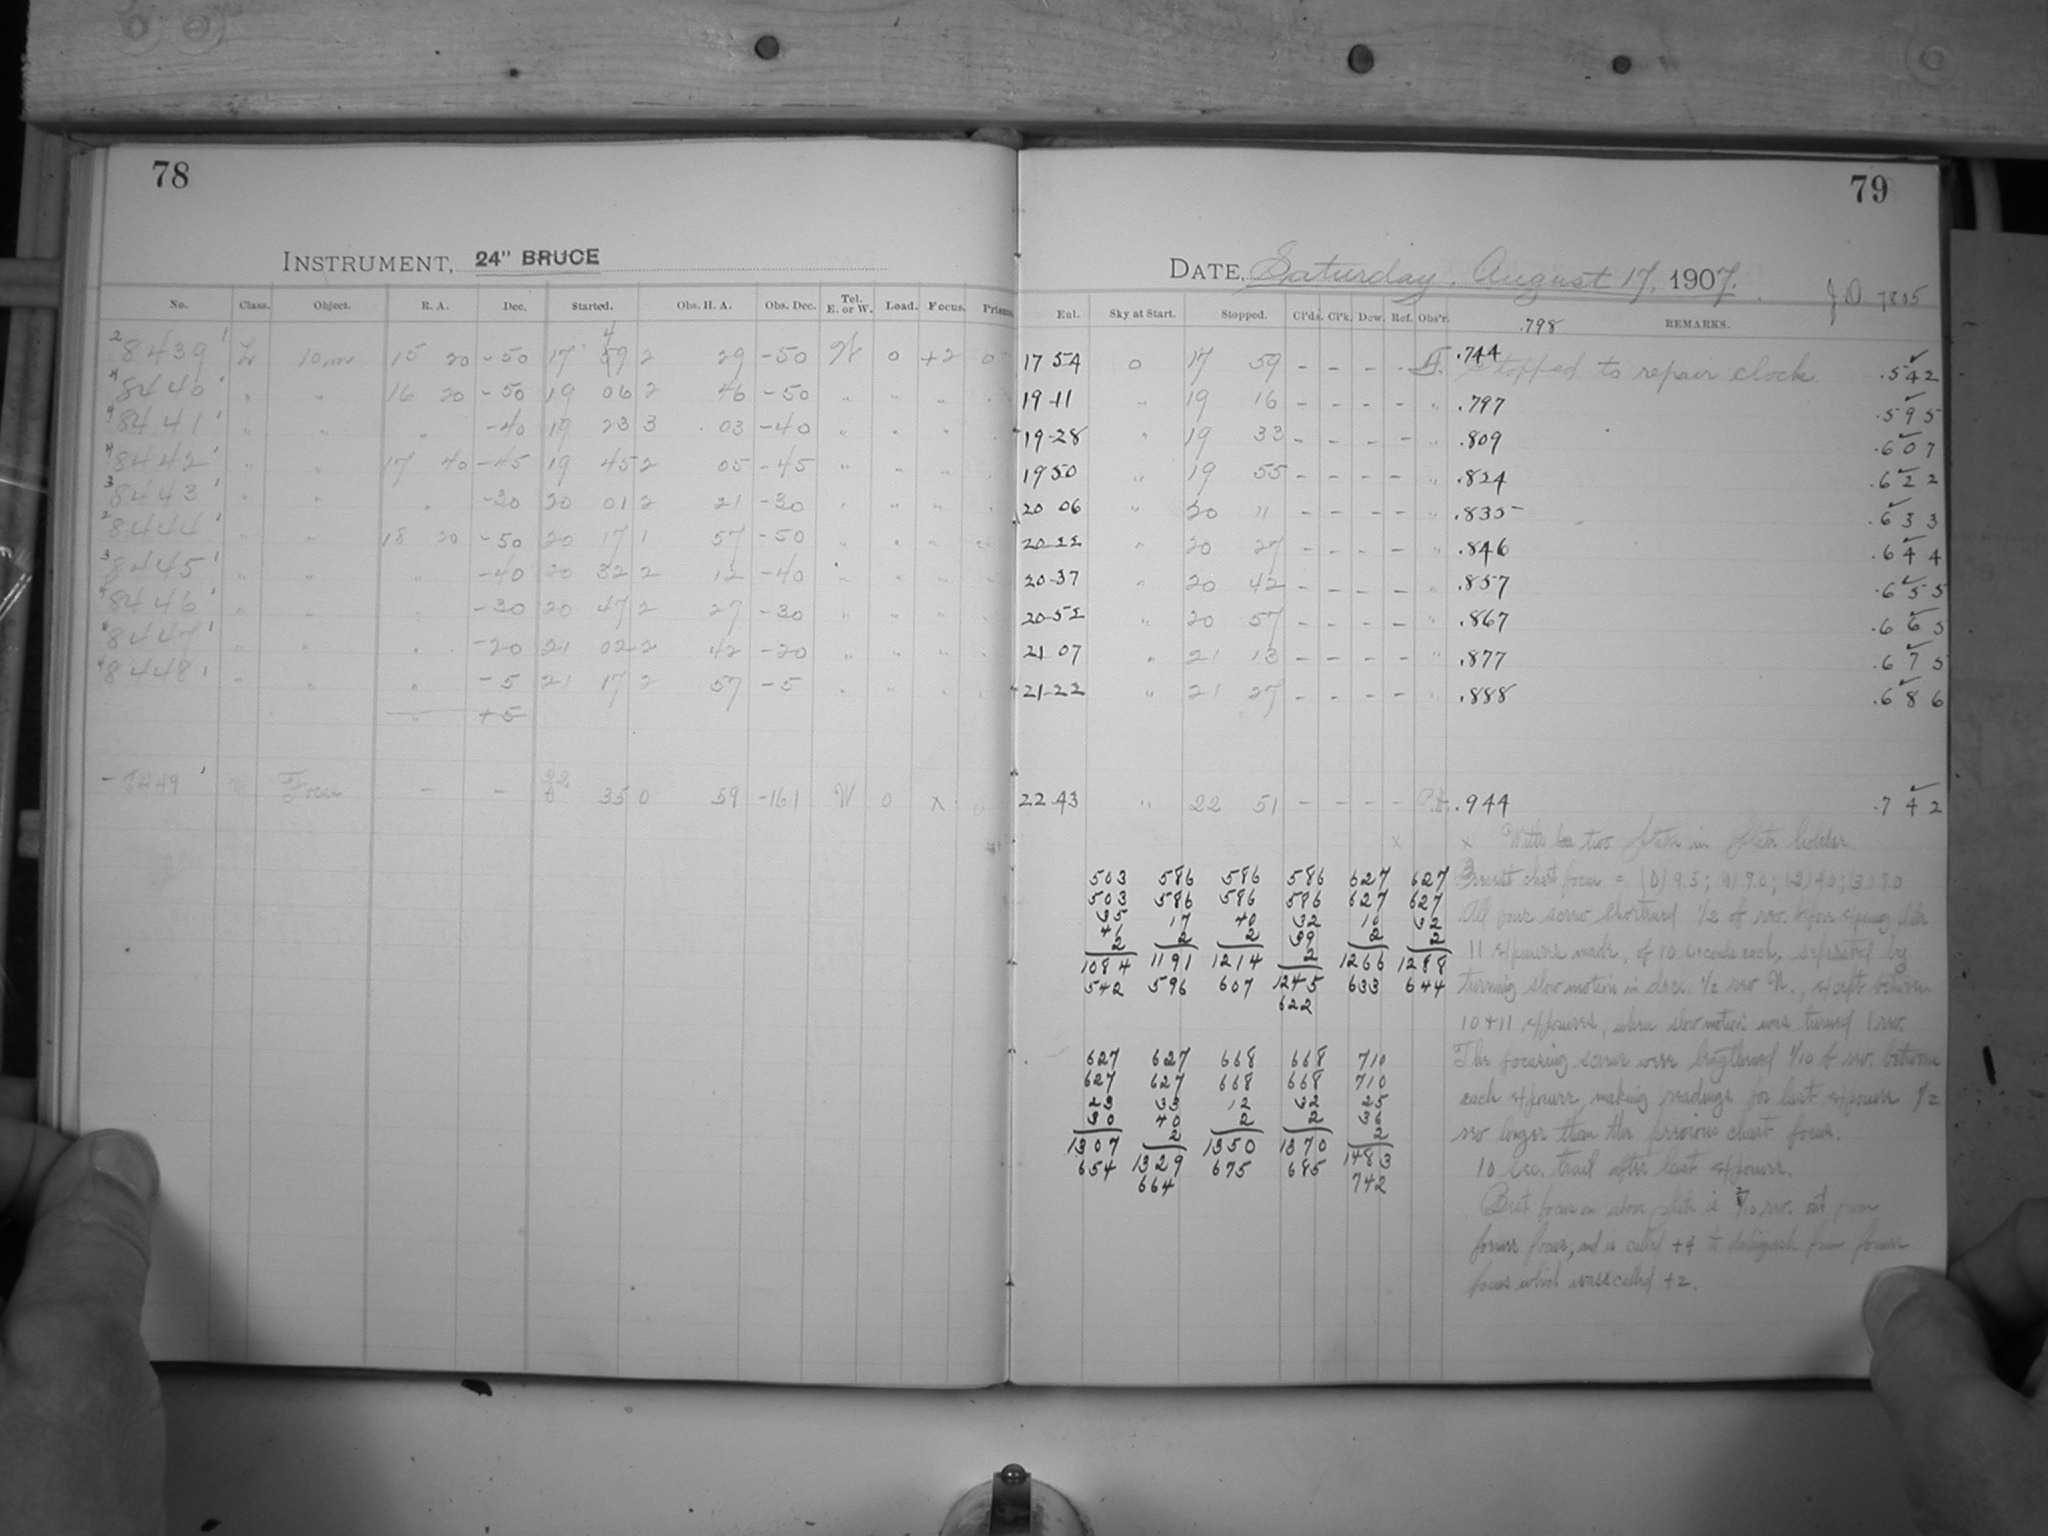 78
INSTRUMENT, 24" BRUCE
No. Class. Object. R. A. Dec. Started. Obs. H. A. Obs. Dec. Tel. E. or W. Load. Focus. Prism.
4
2 8439 ' L 10m 15 20 -50 17 59 2 29 -50 W 0 +2 0
4 8440 ' " " 16 20 -50 19 06 2 46 -50 " " " "
4 8441 ' " " " -40 19 23 3 03 -40 " " " "
4 8442 ' " " 17 40 -45 19 45 2 05 -45 " " " "
3 8443 ' " " " -30 20 01 2 21 -30 " " " "
2 8444 ' " " 18 20 -50 20 17 1 57 -50 " " " "
3 8445 ' " " " -40 20 32 2 12 -40 " " " "
8446 ' " " " -30 20 47 2 27 -30 " " " "
8447 ' " " " -20 21 02 2 42 -20 " " " "
8448 ' " " " -5 21 17 2 57 -5 " " " "
" +5
- 8449 ' Focus - - 22 35 0 59 -16.1 W 0 x 0
79
DATE, Saturday, August 17, 1907.
JD 7805
Eul. Sky at Start. Stopped. Cl'ds. Cl'k. Dew. Ref. Obs'r. .798 REMARKS.
17 54 0 17 59 - - - - .744 Stopped to repair clock .542
19-11 " 19 16 - - - - " .797 .595
19-28 " 19 33 - - - - " .809 .607
19 50 " 19 55 - - - - " .824 .622
20 06 " 20 11 - - - - " .835 .633
20-22 " 20 27 - - - - " .846 .644
20-37 " 20 42 - - - - " .857 .655
20-52 " 20 57 - - - - " .867 .665
21 07 " 21 13 - - - - " .877 .675
21-22 " 21 27 - - - - " .888 .686
22-43 " 22 51 - - - - .944 .742
x x With two plates in plate holder.
503 586 586 586 627 627
503 586 586 586 627 627
35 17 40 32 10 32
41 2 2 39 2 2
2 2
1084 1191 1214 1245 1266 1288
542 596 607 622 633 644
Present chart focus = (D) 9.5; (1) 7.0; (2) 4.0; (3) 7.0
All four screws shortened 1/2 of rev. before exposing plate
11 exposures made, of 10 seconds each, separated by
turning slow motion in dec. 1/2 rev N., except between
10 + 11 exposures, when slow motion was turned 1 rev.
627 627 668 668 710
627 627 668 668 710
23 33 12 32 25
30 40 2 2 36
2 2
1307 1329 1350 1370 1483
654 664 675 685 742
The focusing screws were lengthened 1/10 of rev. between
each exposure, making readings for last exposure 1/2
rev longer than the previous chart focus.
10 sec. trail after last exposure.
Best focus on above plate is /10 rev. out from
former focus, and is called +4 to distinguish from former
focus which was called +2.